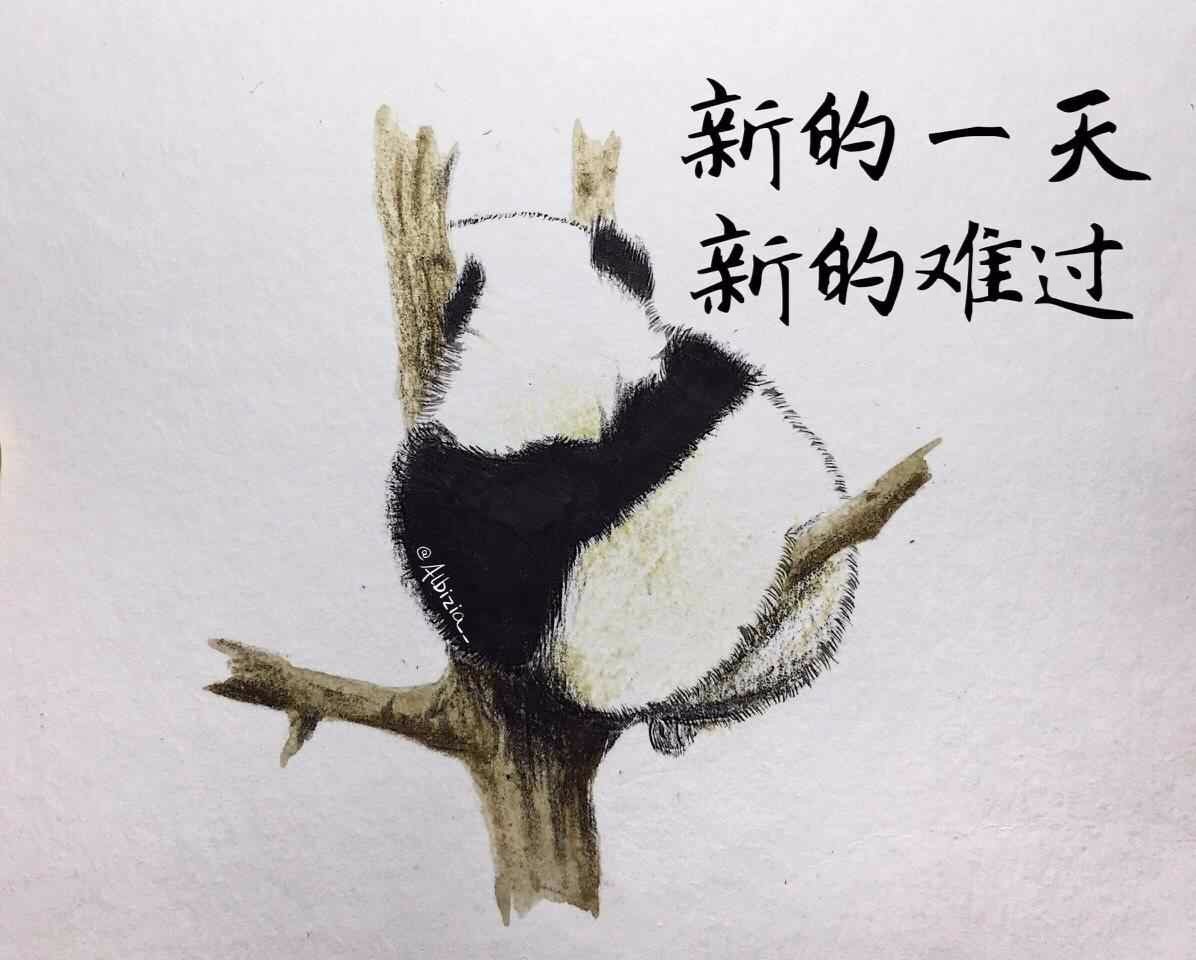 新的一天
新的难过
@Albizia_